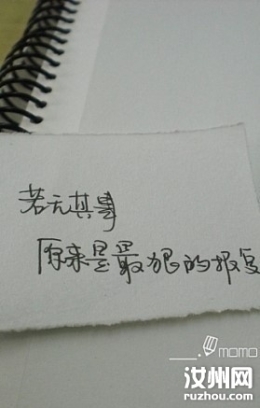 若无其事
原来是最狠的报复
momo
汝州网
ruzhou.com